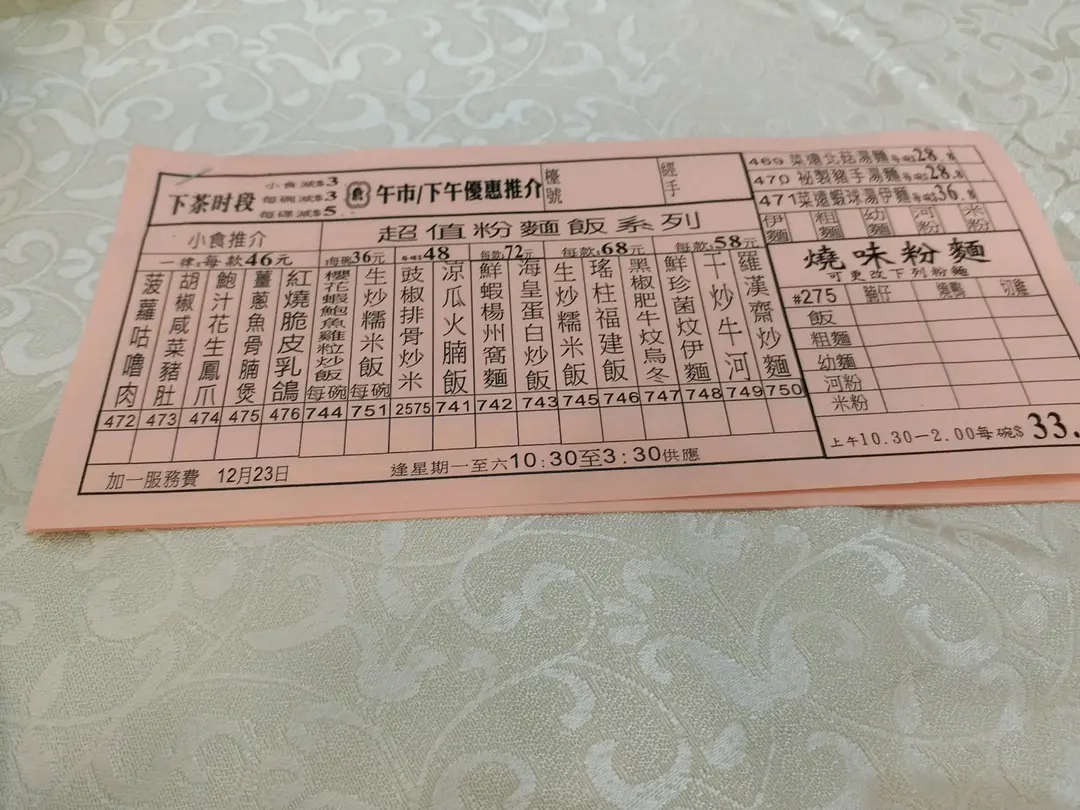 下茶时段
小食減$3
每碗減$3
每碟減$5
午市/下午優惠推介
檯號
經手
小食推介
一律:每款46元
超值粉麵飯系列
每碗36元
48
每款72元
每款:68元
每款:58元
菠蘿咕嚕肉
胡椒咸菜豬肚
鮑汁花生鳳爪
薑蔥魚骨腩煲
紅燒脆皮乳鴿
櫻花蝦鮑魚雞粒炒飯每碗
生炒糯米飯每碗
豉椒排骨炒米
涼瓜火腩飯
鮮蝦楊州窩麵
海皇蛋白炒飯
生炒糯米飯
瑤柱福建飯
黑椒肥牛炆烏冬
鮮珍菌炆伊麵
干炒牛河
羅漢齋炒麵
472 473 474 475 476 744 751 2575 741 742 743 745 746 747 748 749 750
加一服務費 12月23日
逢星期一至六10:30至3:30供應
469 菜遠北菇湯麵 28.8
470 秘製豬手湯麵 28.8
471 菜遠蝦球湯伊麵 36.8
伊麵 粗麵 幼麵 河粉 米粉
燒味粉麵
可更改下列粉麵
#275 腩仔 燒鴨 切雞
飯
粗麵
幼麵
河粉
米粉
上午10.30-2.00每碗$ 33.